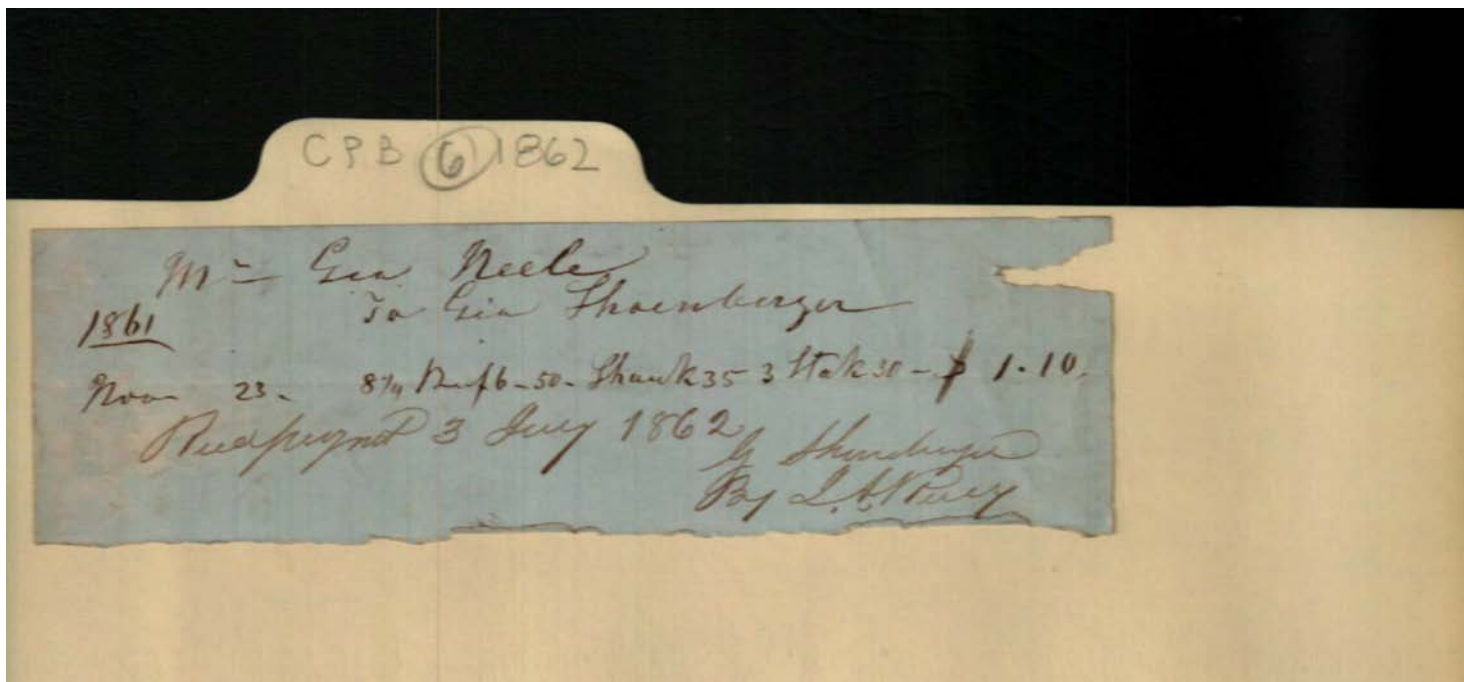 CPB 6 1862
Mr Geo Neele
1861 To Geo Shoenberger
Nov 23. 8¼ Beef 6-50- Shank 35 3 Stak 30 - $ 1.10.
Recd paymnt 3 July 1862
G Shoenberger
By